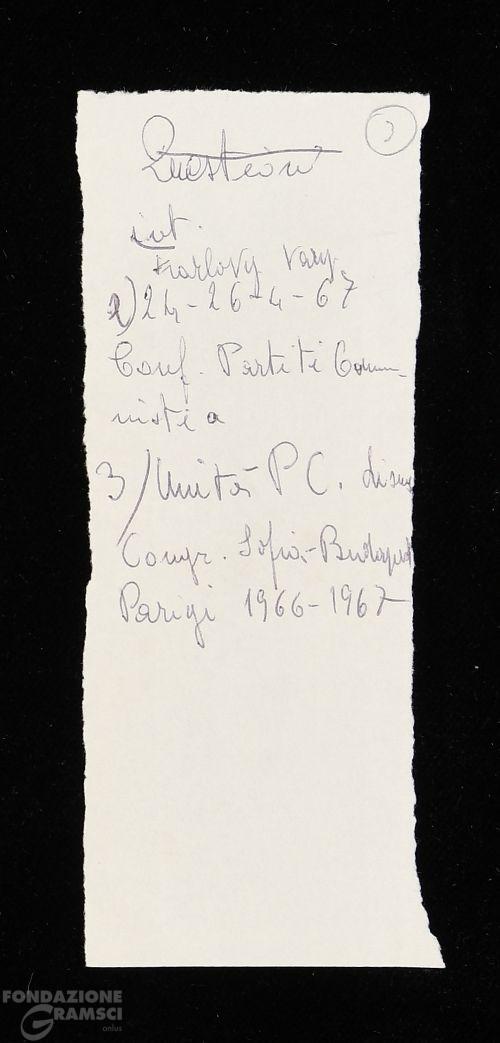 3
Question
int.
Karlovy Vary
2) 24-26-4-67
Conf. Partiti Comu-
nisti a
3/ Unità P C.
Congr. Sofia-Budapest
Parigi 1966-1967
FONDAZIONE
GRAMSCI
onlus